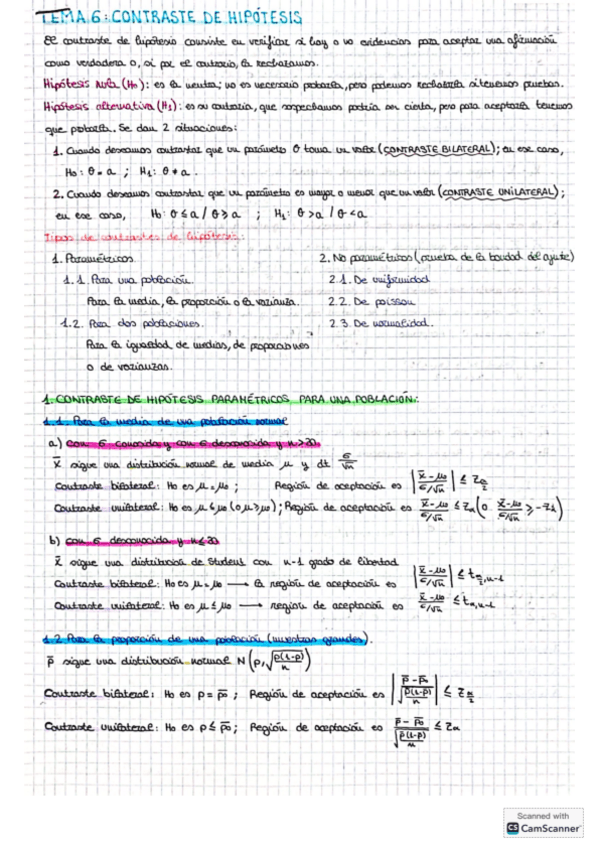 TEMA 6: CONTRASTE DE HIPÓTESIS
El contraste de hipótesis consiste en verificar si hay o no evidencias para aceptar una afirmación
como verdadera o, si por el contrario, la rechazamos.
Hipótesis nula (H₀): es la neutra; no es necesario probarla, pero podemos rechazarla si tenemos pruebas.
Hipótesis alternativa (H₁): es su contraria, que sospechamos podría ser cierta, pero para aceptarla tenemos
que probarla. Se dan 2 situaciones:
1. Cuando deseamos contrastar que un parámetro θ toma un valor (CONTRASTE BILATERAL); en ese caso,
H₀: θ = a ; H₁: θ ≠ a.
2. Cuando deseamos contrastar que un parámetro es mayor o menor que un valor (CONTRASTE UNILATERAL);
en ese caso, H₀: θ ≤ a / θ ≥ a ; H₁: θ > a / θ < a
Tipos de contrastes de hipótesis:
1. Paramétricos
1.1. Para una población.
Para la media, la proporción o la varianza.
1.2. Para dos poblaciones.
Para la igualdad de medias, de proporciones
o de varianzas.
2. No paramétricos (prueba de la bondad del ajuste)
2.1. De uniformidad
2.2. De poisson
2.3. De normalidad.
1. CONTRASTE DE HIPÓTESIS PARAMÉTRICOS PARA UNA POBLACIÓN:
1.1 Para la media de una población normal
a) Con σ conocida y con σ desconocida y n>30
x̄ sigue una distribución normal de media μ y dt σ/√n
Contraste bilateral: H₀ es μ = μ₀ ; Región de aceptación es |(x̄ - μ₀)/(σ/√n)| ≤ Z α/2
Contraste unilateral: H₀ es μ ≤ μ₀ (o μ ≥ μ₀) ; Región de aceptación es (x̄ - μ₀)/(σ/√n) ≤ Zα (o (x̄ - μ₀)/(σ/√n) ≥ -Zα)
b) con σ desconocida y n≤30
x̄ sigue una distribución de Student con n-1 grado de libertad
Contraste bilateral: H₀ es μ = μ₀ → la región de aceptación es |(x̄ - μ₀)/(σ/√n)| ≤ t α/2, n-1
Contraste unilateral: H₀ es μ ≤ μ₀ → región de aceptación es (x̄ - μ₀)/(σ/√n) ≤ t α, n-1
1.2 Para la proporción de una población (muestras grandes).
p̄ sigue una distribución normal N (p, √(p(1-p)/n))
Contraste bilateral: H₀ es p = p̄₀ ; Región de aceptación es |(p̄ - p̄₀)/√(p̄(1-p̄)/n)| ≤ Z α/2
Contraste unilateral: H₀ es p ≤ p̄₀ ; Región de aceptación es (p̄ - p̄₀)/√(p̄(1-p̄)/n) ≤ Zα
Scanned with
CS CamScanner